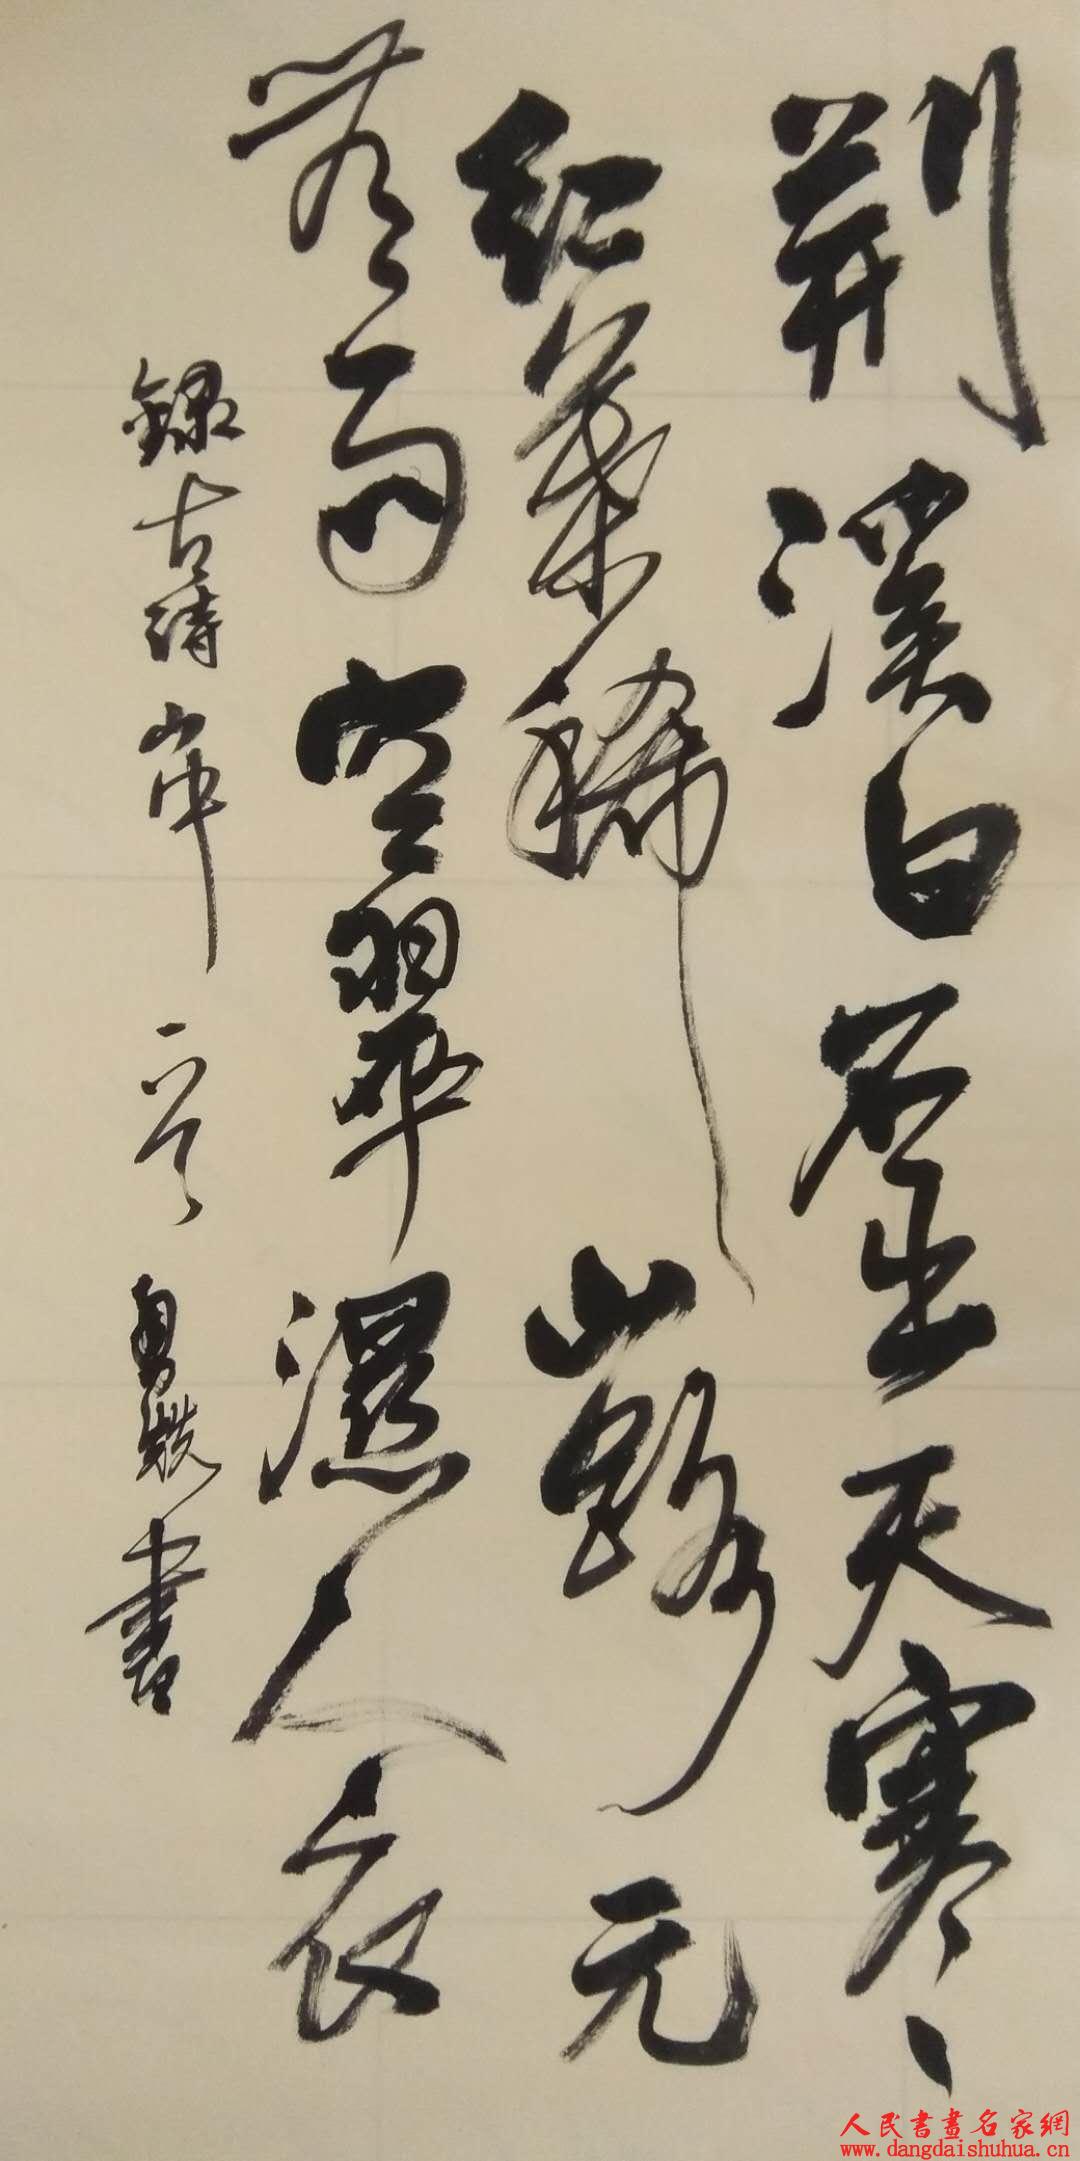 荆溪白石出天寒
红葉稀山路元
無雨空翠濕人衣
錄古詩山中一首 書
人民書畫名家網
www.dangdaishuhua.cn